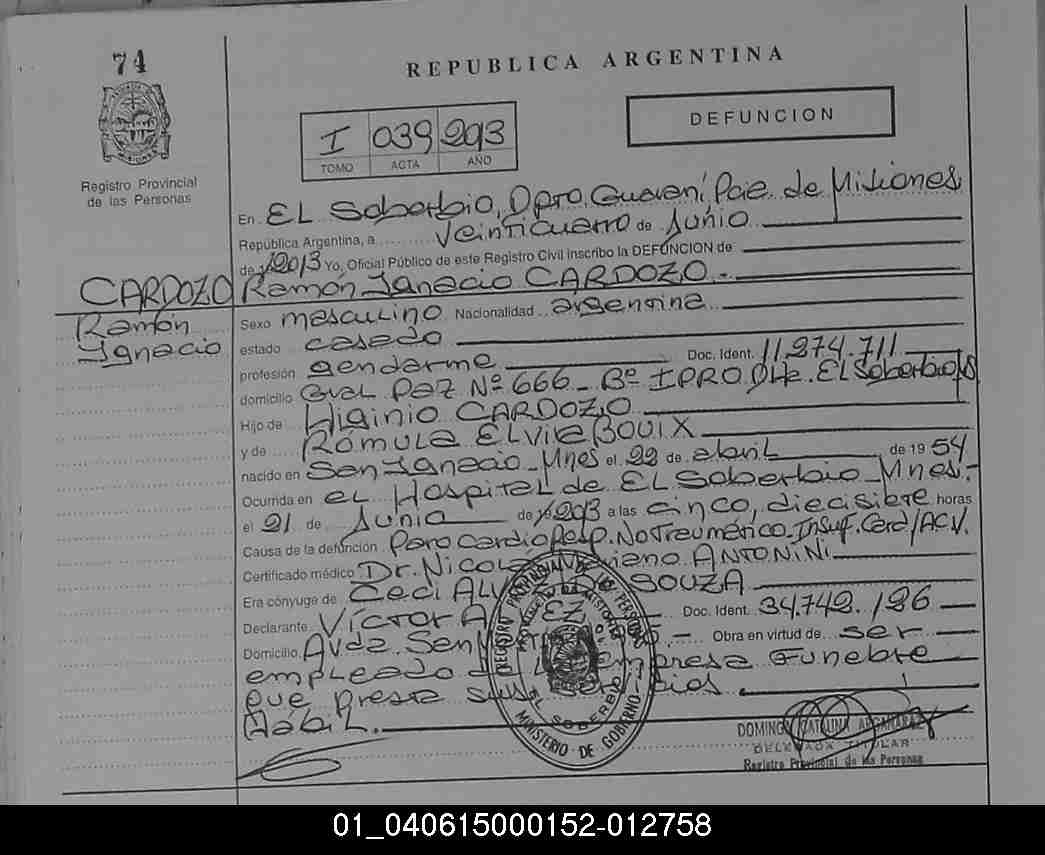 74
REPUBLICA ARGENTINA
DEFUNCION
I 039 2013
TOMO ACTA AÑO
Registro Provincial
de las Personas
En EL Soberbio, Dpto. Guaraní Pcie. de Misiones
República Argentina, a veinticuatro de Junio
de 2013 Yo, Oficial Público de este Registro Civil inscribo la DEFUNCION de
CARDOZO Ramón Ignacio CARDOZO.-
Ramón
Ignacio
Sexo masculino Nacionalidad argentina
estado casado
profesión gendarme Doc. Ident. 11.274.711
domicilio Gral Paz Nº 666 - Bº IPRODHa. El Soberbio
Hijo de Higinio CARDOZO
y de Rómula ELvira BOUIX
nacido en San Ignacio - Mnes el 22 de abril de 19 54
Ocurrida en eL Hospital de EL Soberbio - Mnes.-
el 21 de Junio de 2013 a las cinco, diecisiete horas
Causa de la defunción Paro Cardio Resp. No Traumático. Insuf. Card/ACV.
Certificado médico Dr. ANTONINI
Era cónyuge de Ceci SOUZA
Declarante Víctor Doc. Ident. 34.742.186
Domicilio Avda. San Obra en virtud de ser
empleado empresa Funebre
que presta sus
Habil.
REGISTRO PROVINCIAL DE LAS PERSONAS
EL SOBERBIO
MINISTERIO DE GOBIERNO
DOMINGA CATALINA
DELEGADA TITULAR
Registro Provincial de las Personas
01_040615000152-012758